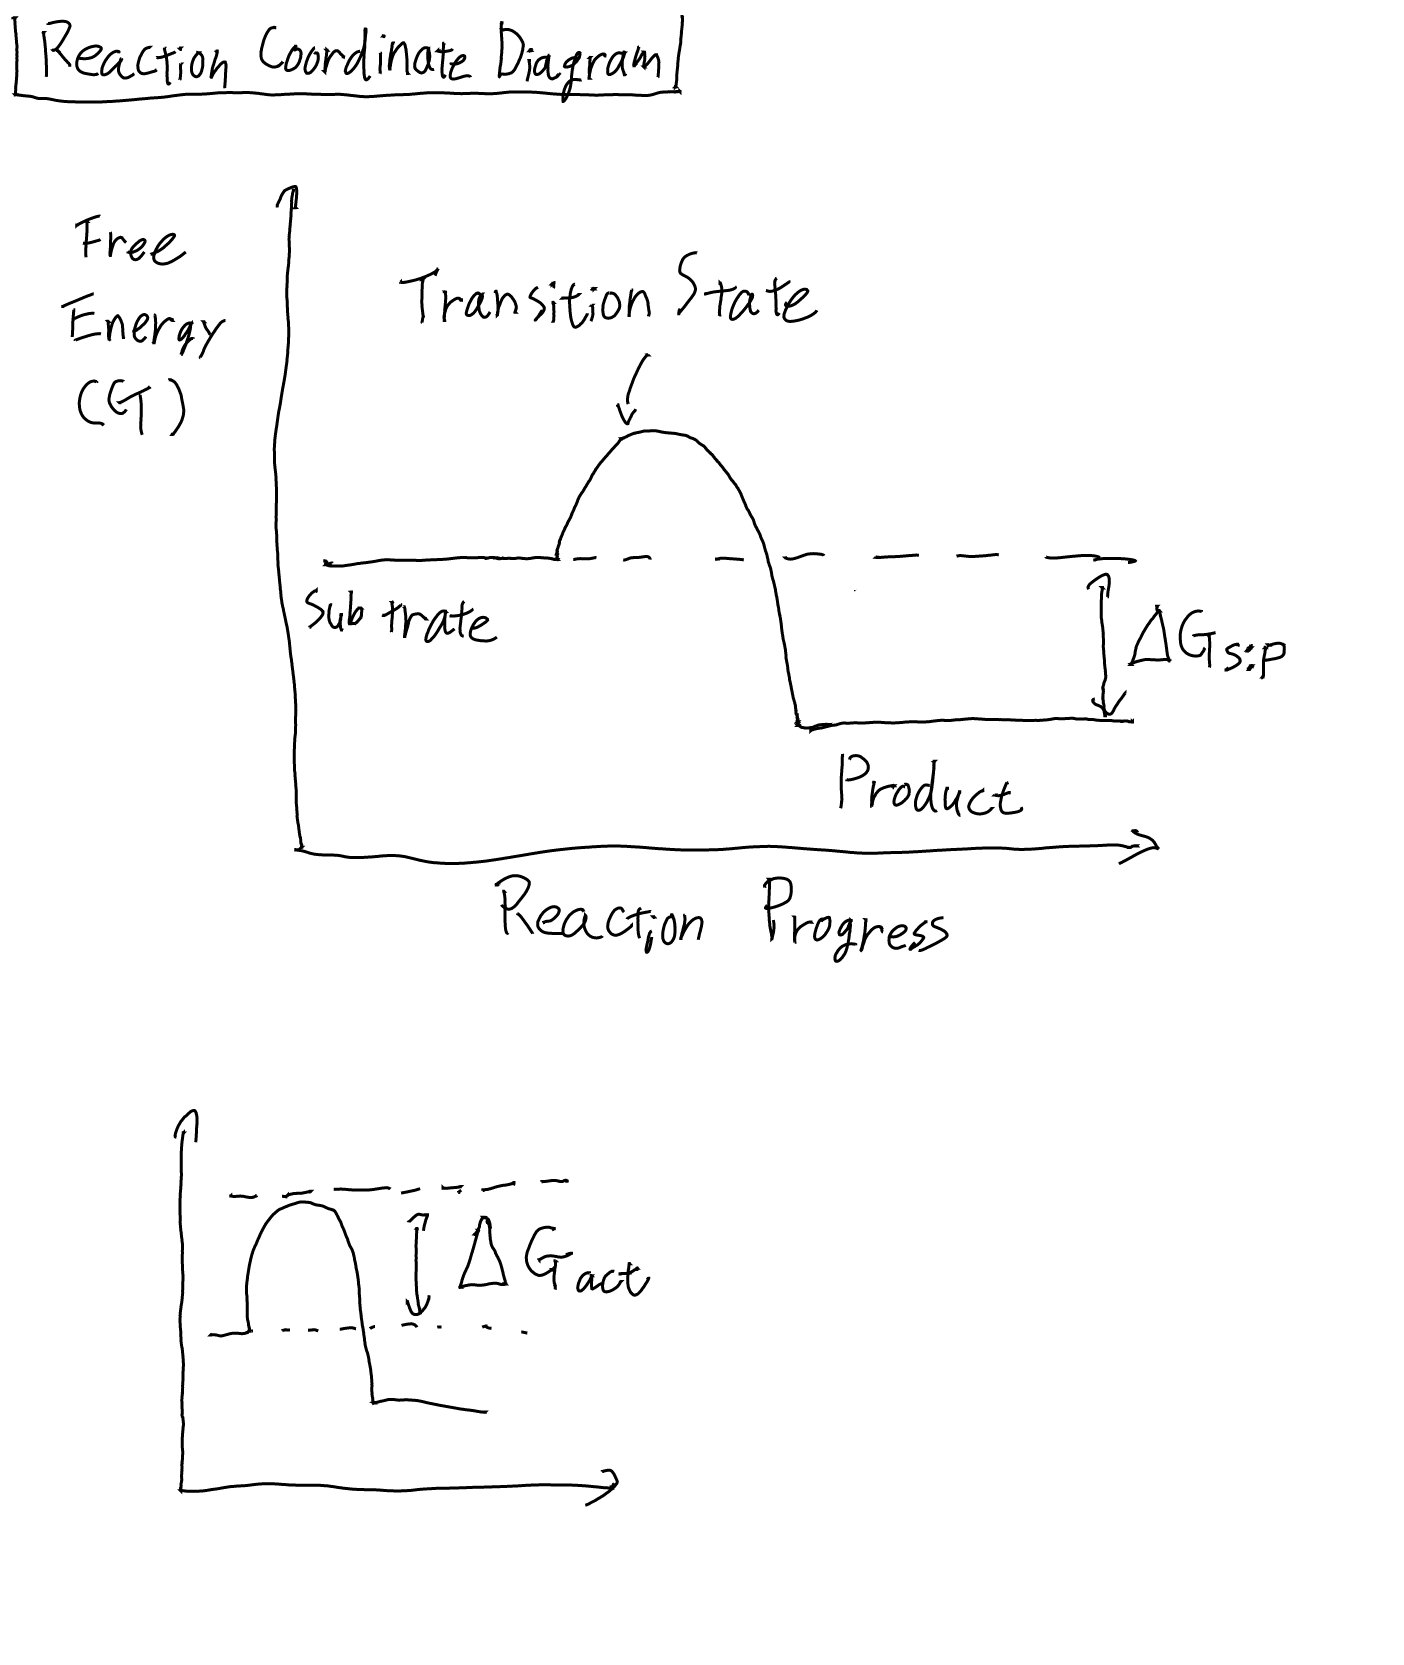 Reaction Coordinate Diagram
Free
Energy
(G)
Transition State
Subtrate
ΔGS:P
Product
Reaction Progress
ΔGact